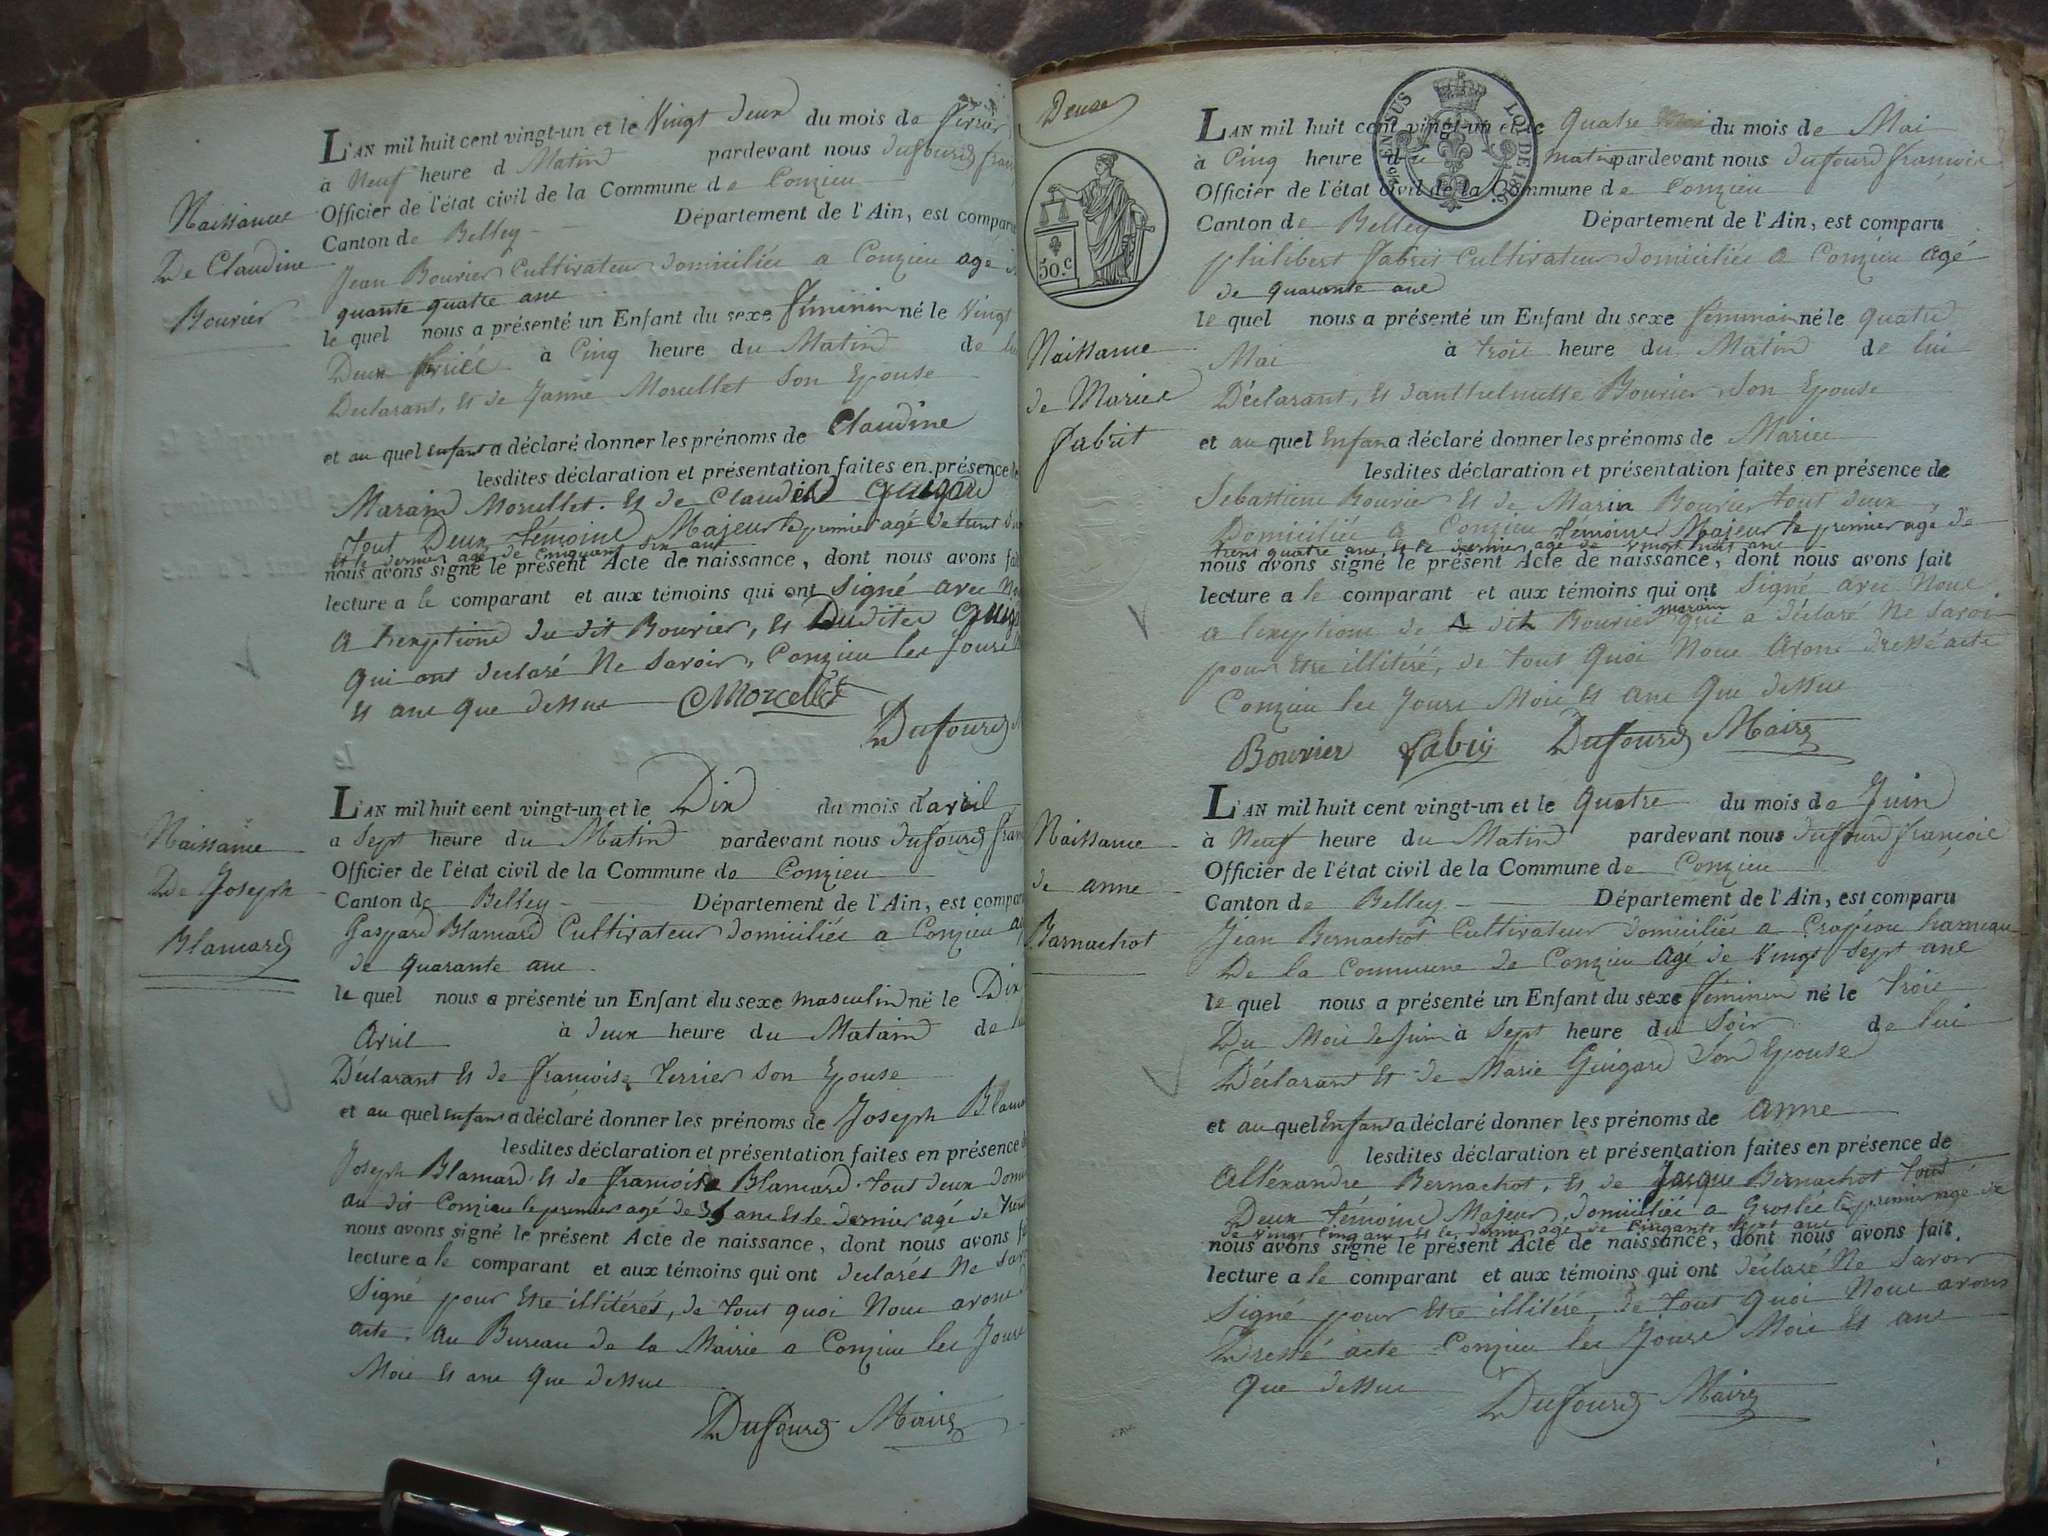 Naissance
De Claudine
Bouvier
L'AN mil huit cent vingt-un et le Vingt Deux du mois de fevrier
à Neuf heure d Matin pardevant nous Dufourd fran
Officier de l'état civil de la Commune de Conzieu
Canton de Belley Département de l'Ain, est comparu
Jean Bouvier Cultivateur Domiciliée a Conzieu agé
quante quatre ane
le quel nous a présenté un Enfant du sexe féminin né le Vingt
Deux à Cinq heure du Matin de lui
Declarant, Et de Janne Morullet Son Epouse
et au quel enfant a déclaré donner les prénoms de Claudine
lesdites déclaration et présentation faites en présence de
Marain Morullet. Et de Claude Guigard
tout Deux témoine Majeur le premier agé de trent
Et le dernier agé de Cinquante Six ane
nous avons signé le présent Acte de naissance, dont nous avons fait
lecture a le comparant et aux témoins qui ont Signé avec N
a lexeption du dit Bouvier, Et Dudites Guig
qui ont declaré Ne Savoir, Conzieu les Jours
Et ane que dessue CMorellet
Dufourd
Naissance
De Joseph
Blamard
L'AN mil huit cent vingt-un et le Dix du mois d'avril
a Sept heure du Matin pardevant nous Dufourd fran
Officier de l'état civil de la Commune de Conzieu
Canton de Belley Département de l'Ain, est comparu
Gaspard Blamard Cultivateur Domiciliée a Conzieu ag
de quarante ane
le quel nous a présenté un Enfant du sexe masculin né le Dix
Avril à deux heure du Matain de lui
Déclarant Et de françoise Terrier Son Epouse
et au quel enfant a déclaré donner les prénoms de Joseph Blamar
lesdites déclaration et présentation faites en présence de
Joseph Blamard. Et de françoise Blamard. tout deux Domi
au dit Conzieu le premier agé de ane Et le dernier agé de Trent
nous avons signé le présent Acte de naissance, dont nous avons fait
lecture a le comparant et aux témoins qui ont declarés Ne Sav
Signé pour Etre illitérés, de tout quoi Nous avons
acte. au Bureau de la Mairie a Conzieu les Jours
Moie Et ane que dessue
Dufourd Maire
Deuze
50.c
TIMBRE
Naissance
de Mariee
fabrit
L'AN mil huit cent vingt-un et le Quatre du mois de Mai
à Cinq heure du matin pardevant nous Dufourd françoie
Officier de l'état civil de la Commune de Conzieu
Canton de Belley Département de l'Ain, est comparu
philibert fabrit Cultivateur Domiciliée a Conzieu agé
de quarante ane
le quel nous a présenté un Enfant du sexe féminain né le quatre
Mai à trois heure du Matin de lui
Déclarant, Et danthelmette Bouvier Son Epouse
et au quel Enfan a déclaré donner les prénoms de Mariee
lesdites déclaration et présentation faites en présence de
Sebastiene Bouvier Et de Marin Bouvier tout deux
Domiciliée a Conzieu témoine Majeur le premier agé de
trent quatre ane Et le dernier agé de vingt huit ane
nous avons signé le présent Acte de naissance, dont nous avons fait
lecture a le comparant et aux témoins qui ont Signé avec Noue
a lexeptione de dit Bouvier marain qui a déclaré Ne Savoir
pour Etre illitéré, de tout quoi Noue avons dressé acte
Conzieu les Jours Moie Et ane que dessue
Bouvier fabry Dufourd Maire
Naissance
de anne
Barnachot
L'AN mil huit cent vingt-un et le quatre du mois de Juin
à Neuf heure du Matin pardevant nous Dufourd françoie
Officier de l'état civil de la Commune de Conzieu
Canton de Belley Département de l'Ain, est comparu
Jean Bernachot Cultivateur Domiciliée a Crapéou hameau
De la Commune de Conzieu agé de Vingt Sept ane
le quel nous a présenté un Enfant du sexe féminin né le Troie
Du Moie de Juin à Sept heure du Soir de lui
Déclarant Et de Marie Guigard Son Epouse
et au quel Enfan a déclaré donner les prénoms de anne
lesdites déclaration et présentation faites en présence de
allexandre Bernachot, Et de Jasque Bernachot tout
Deux témoine Majeur Domiciliée a Groslée le premier agé de
de vingt Cinq ane Et le dernier agé de Cinqante Sept ane
nous avons signé le présent Acte de naissance, dont nous avons fait
lecture a le comparant et aux témoins qui ont déclaré Ne Savoir
Signé pour Etre illitéré, de tout quoi Noue avons
Dressé acte Conzieu les Jours Moie Et ane
que dessue Dufourd Maire